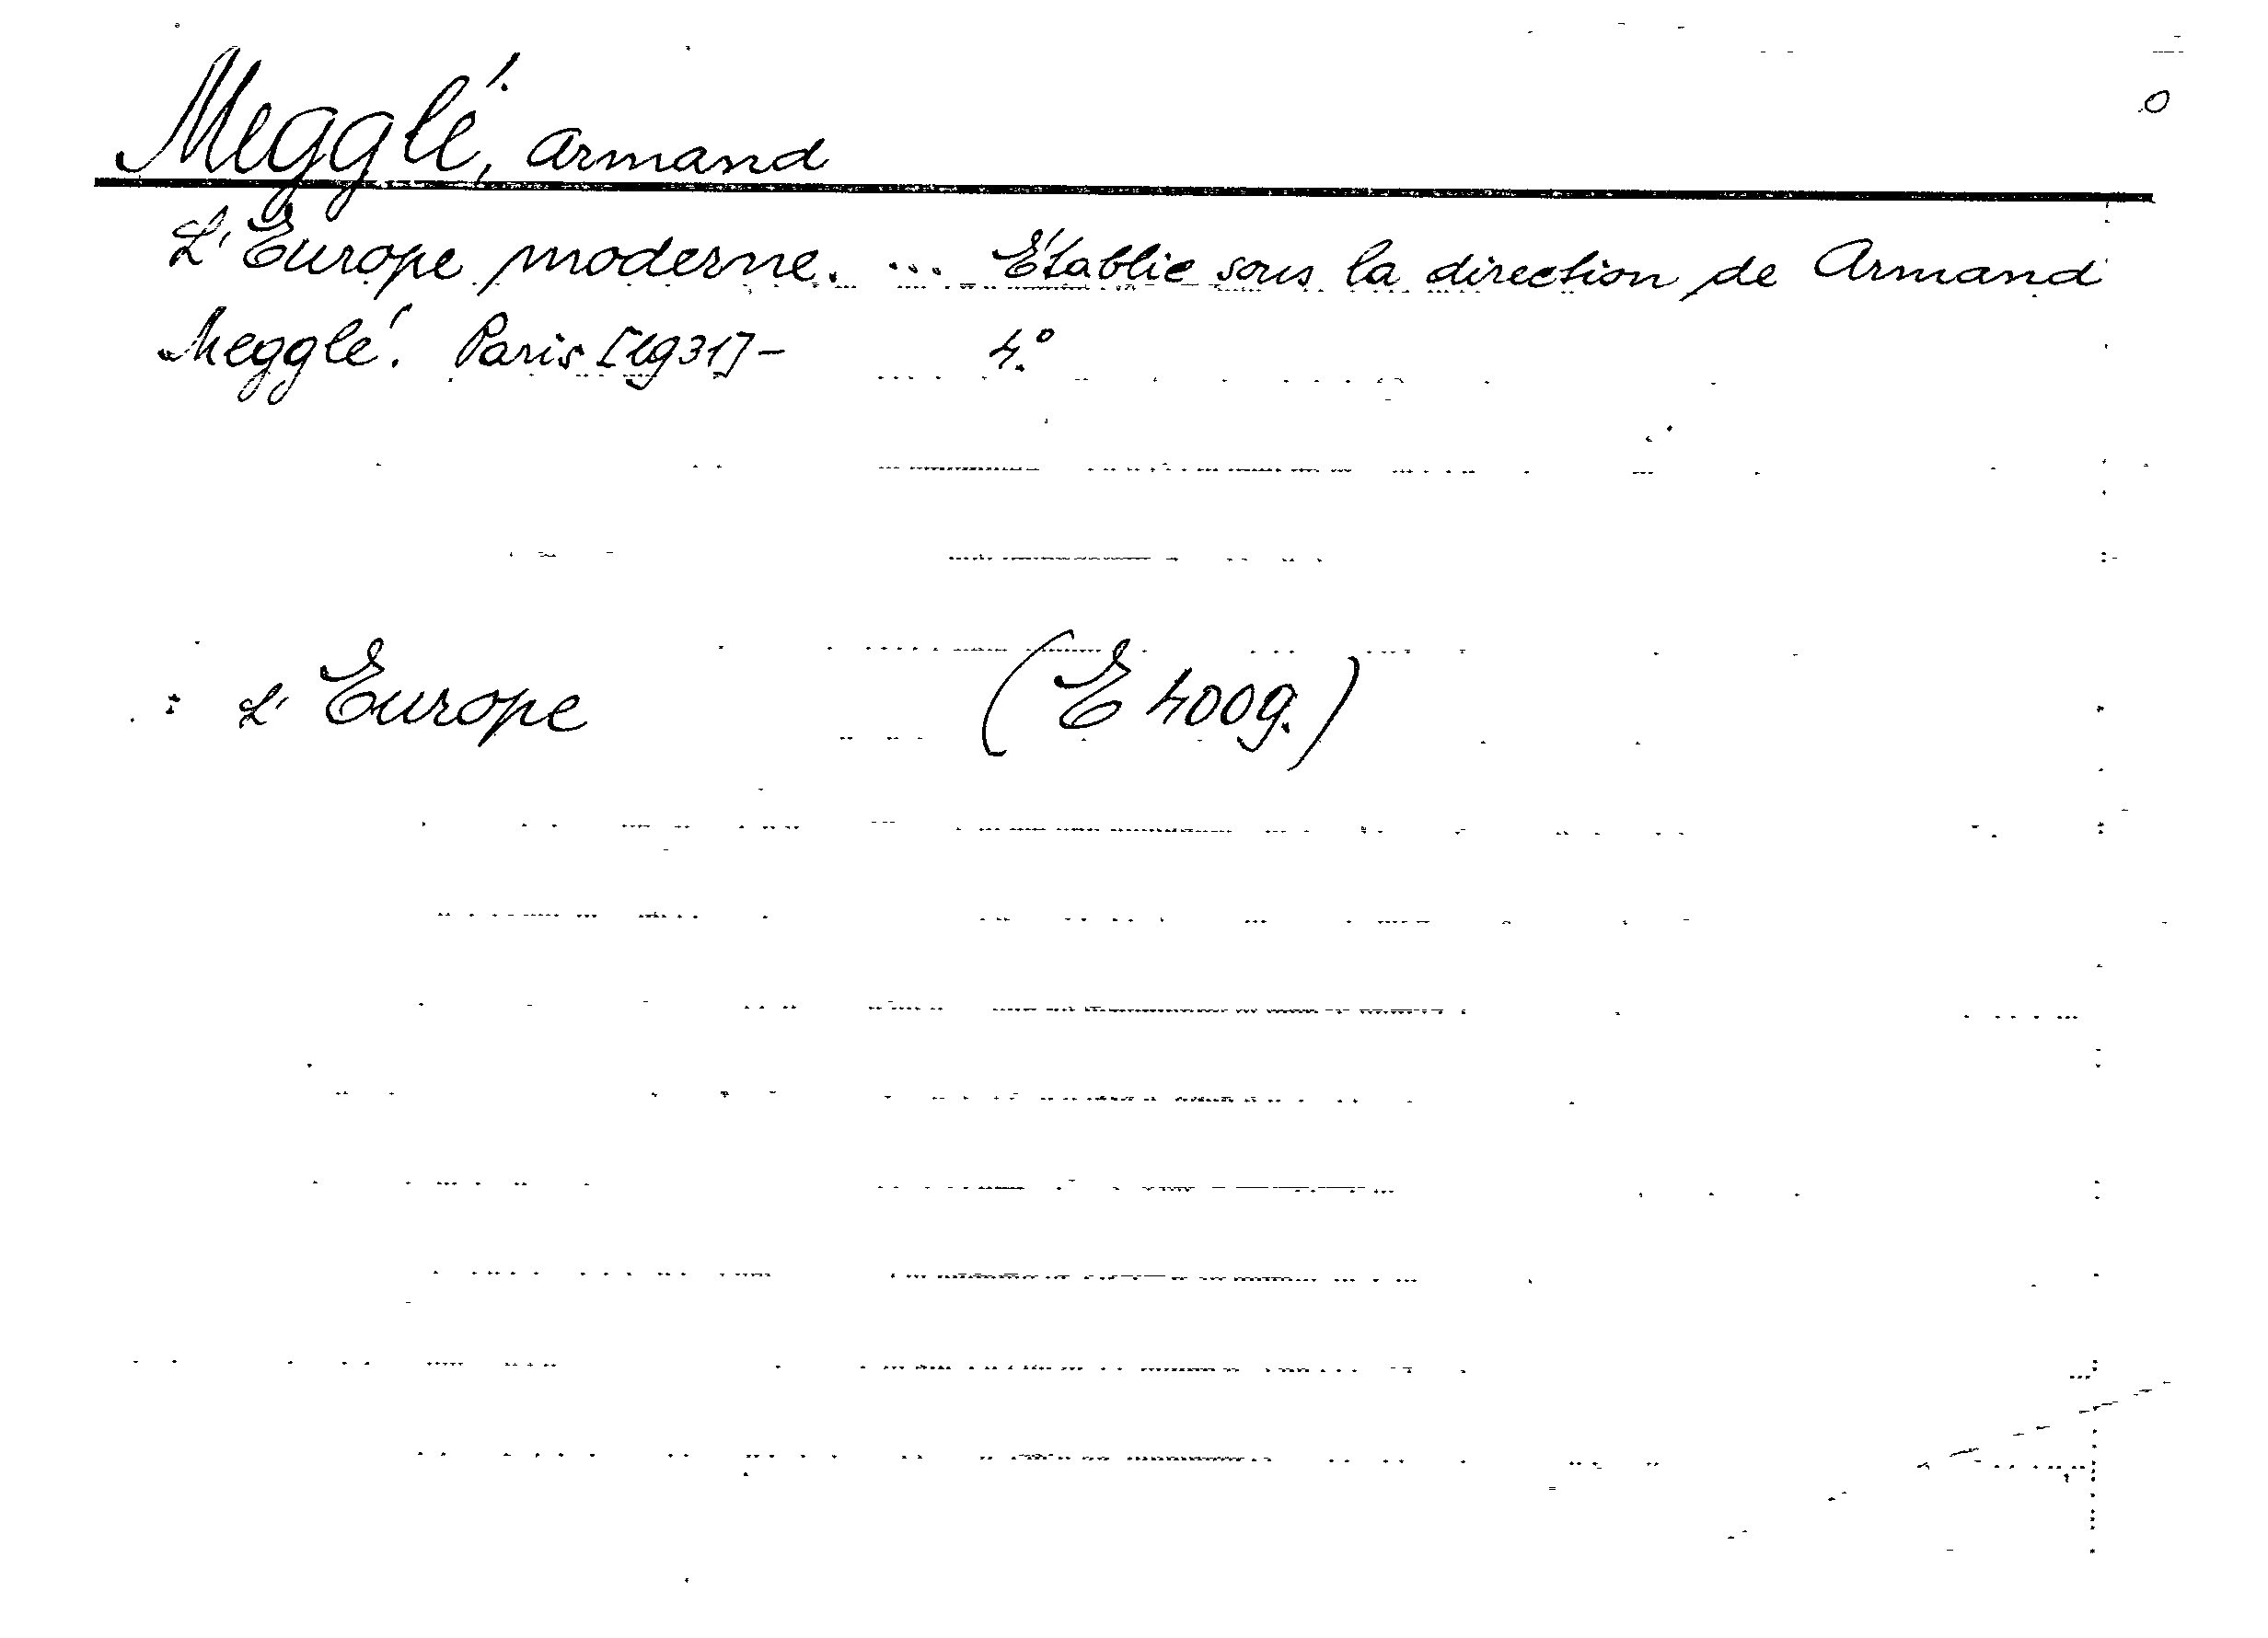 Megglé, Armand
L'Europe moderne. ... Établie sous la direction de Armand
Megglé. Paris [1931]- 4.°
: L'Europe (E 4009.)